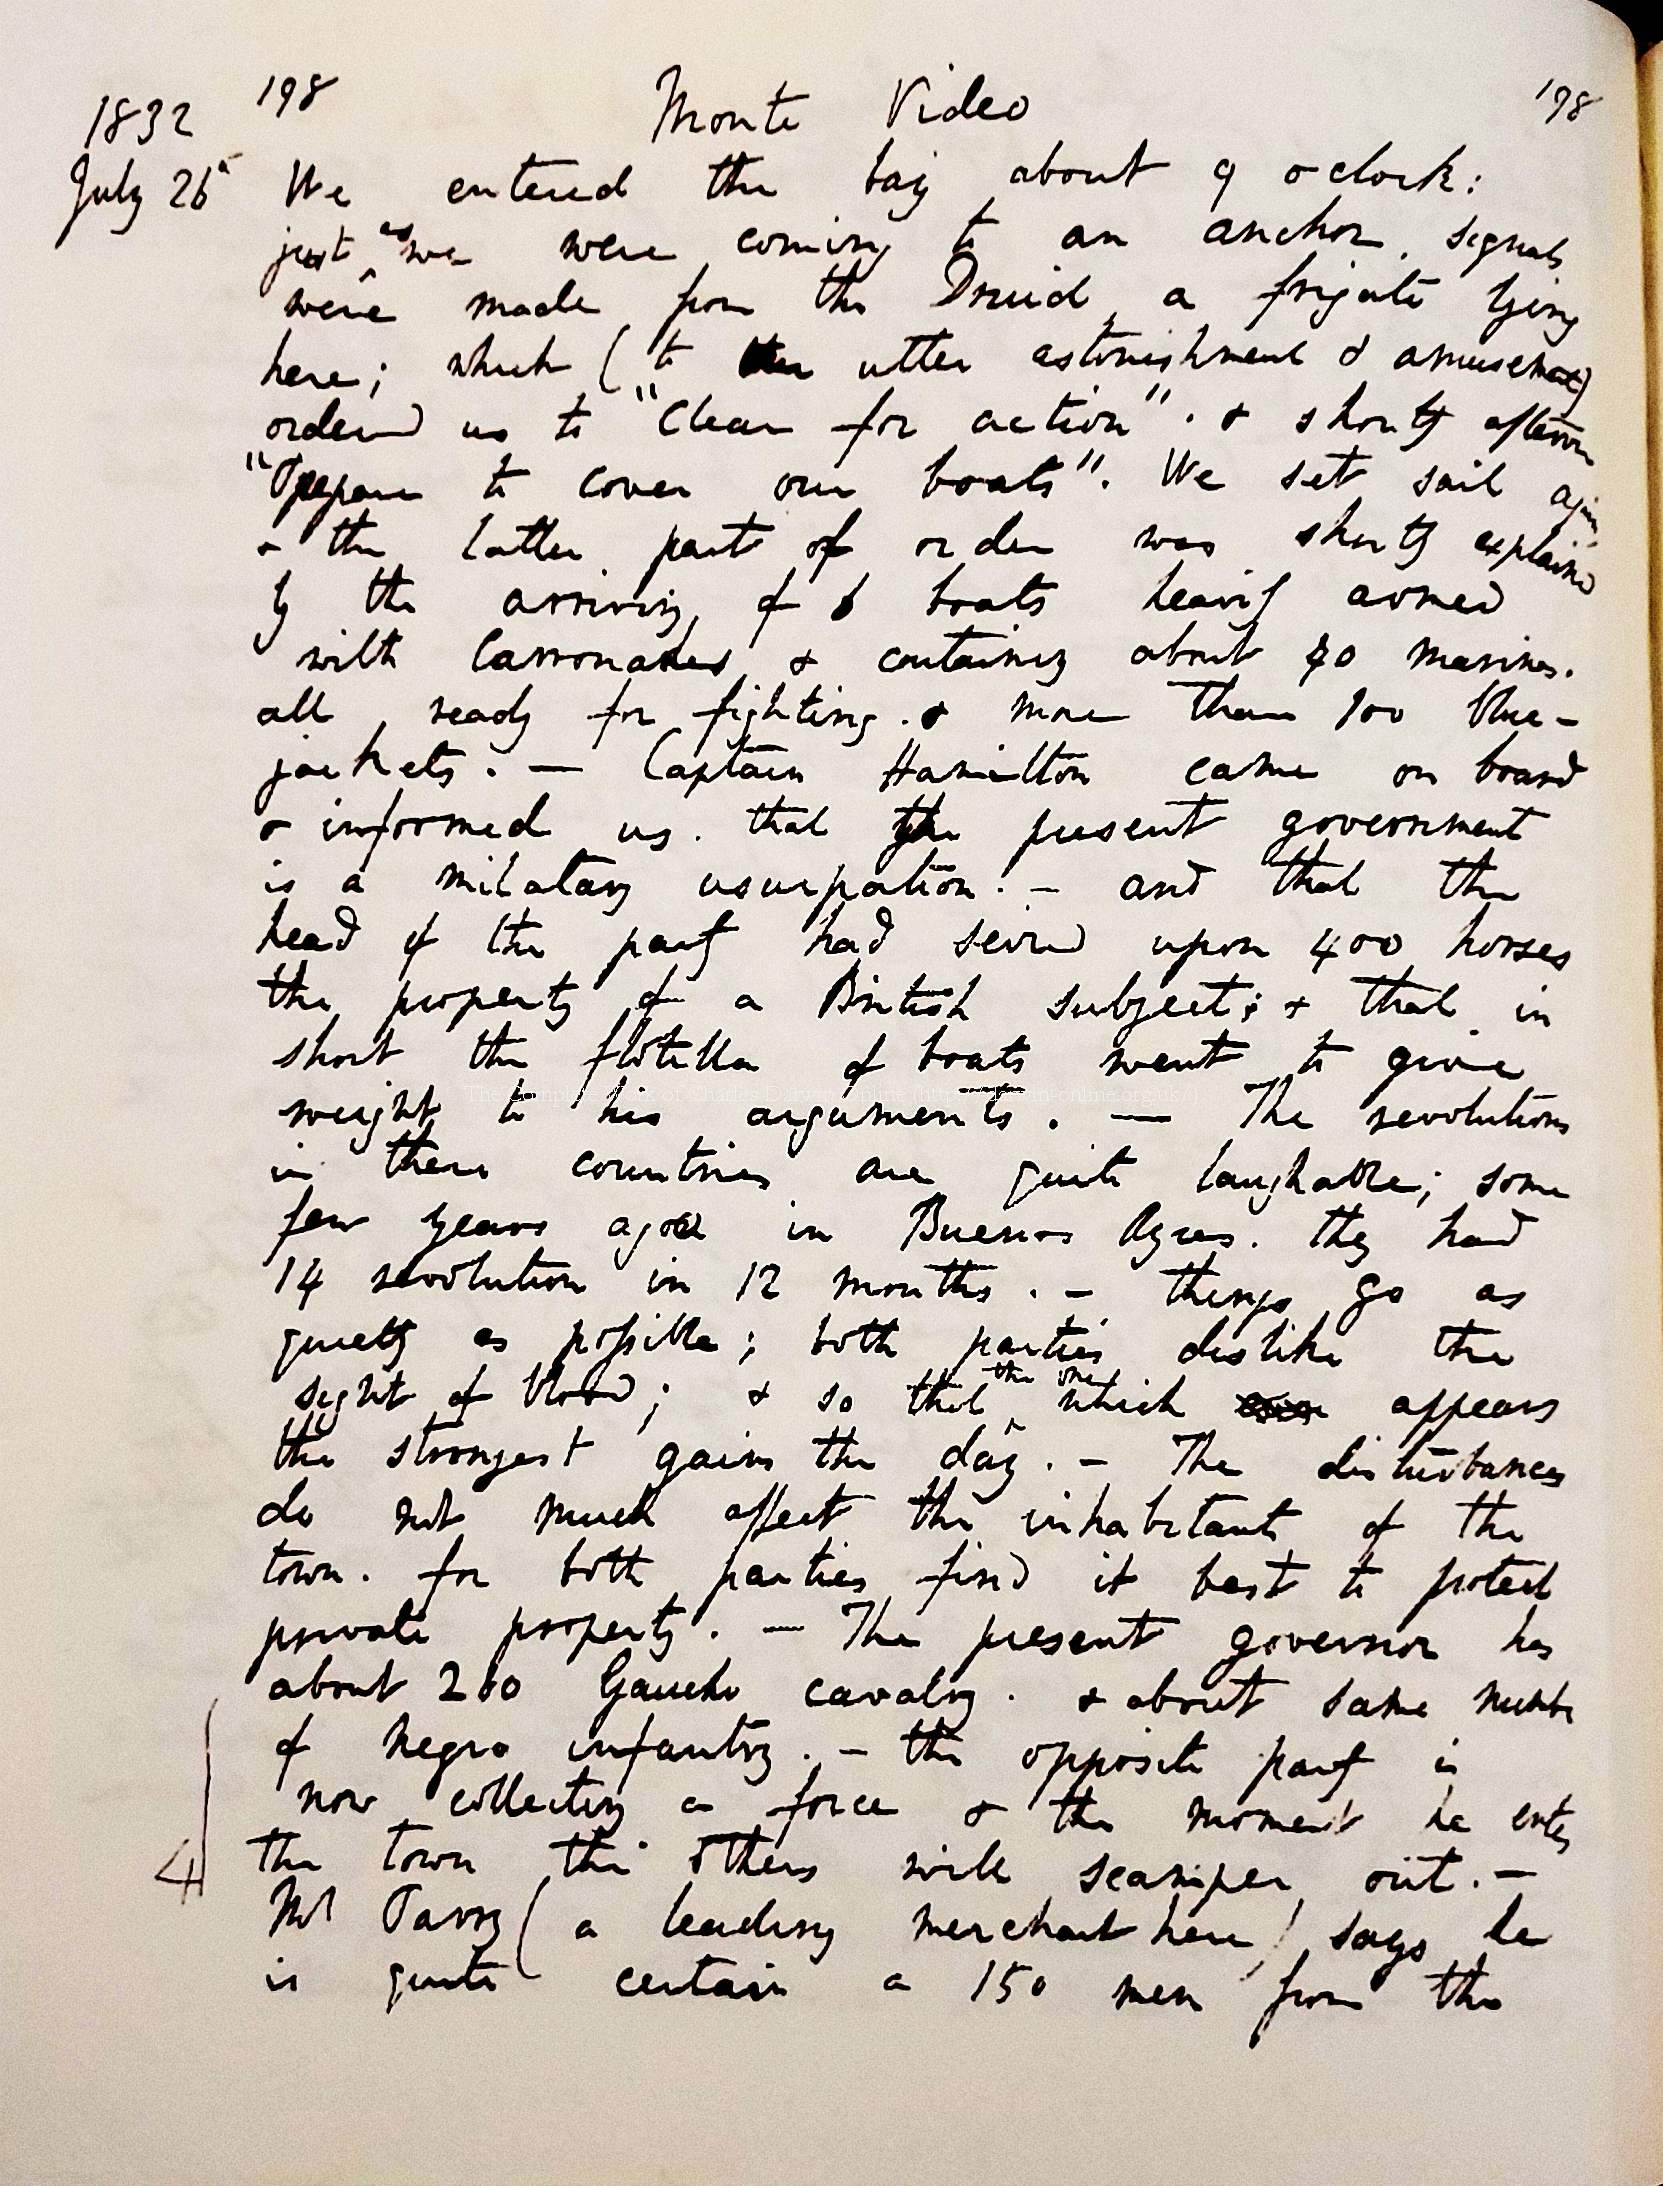 198 Monte Video 198
1832
July 26th We entered the bay about 9 oclock:
just as we were coming to an anchor, signals
were made from the Druid, a frigate lying
here; which (to our utter astonishment & amusement)
ordered us to "Clear for action" . & shortly afterwards
"Prepare to cover our boats". We set sail again
& the latter part of order was shortly explained
by the arriving of 6 boats heavily armed
with Carronades & containing about 40 marines.
all ready for fighting . & more than 100 blue-
jackets . — Captain Hamilton came on board
& informed us . that the present government
is a milatary usurpation . - and that the
head of the party had seized upon 400 horses
the property of a British subject; & that in
short the flotilla of boats went to give
weight to his arguments . — The revolutions
in these countries are quite laughable; some
few years ago in Buenos Ayres . they had
14 revolution in 12 months . - things go as
quietly as possible; both parties dislike the
sight of blood; & so that the one which appears
the strongest gains the day . - The disturbances
do not much affect the inhabitants of the
town . for both parties find it best to protect
private property . — The present governor has
about 260 Gaucho cavalry . & about same number
of Negro infantry . - the opposite party is
now collecting a force & the moment he enters
the town the others will scamper out . -
Mr Parry (a leading merchant here) says he
is quite certain a 150 men from the